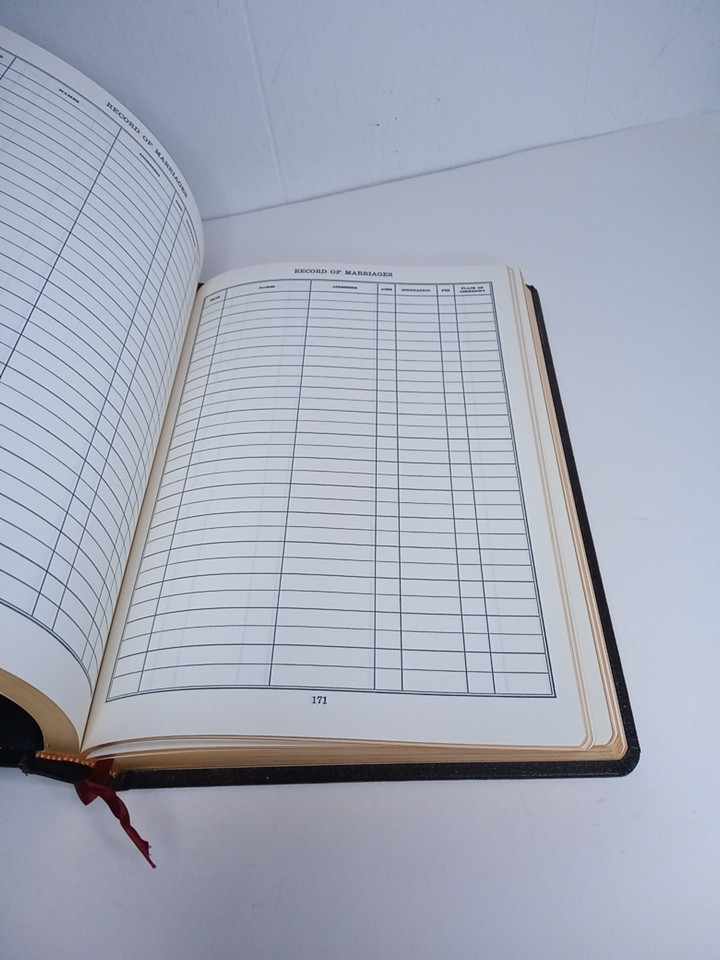 NAMES
RECORD OF MARRIAGES
RECORD OF MARRIAGES
DATE NAMES ADDRESSES AGES OCCUPATION FEE PLACE OF CEREMONY
171